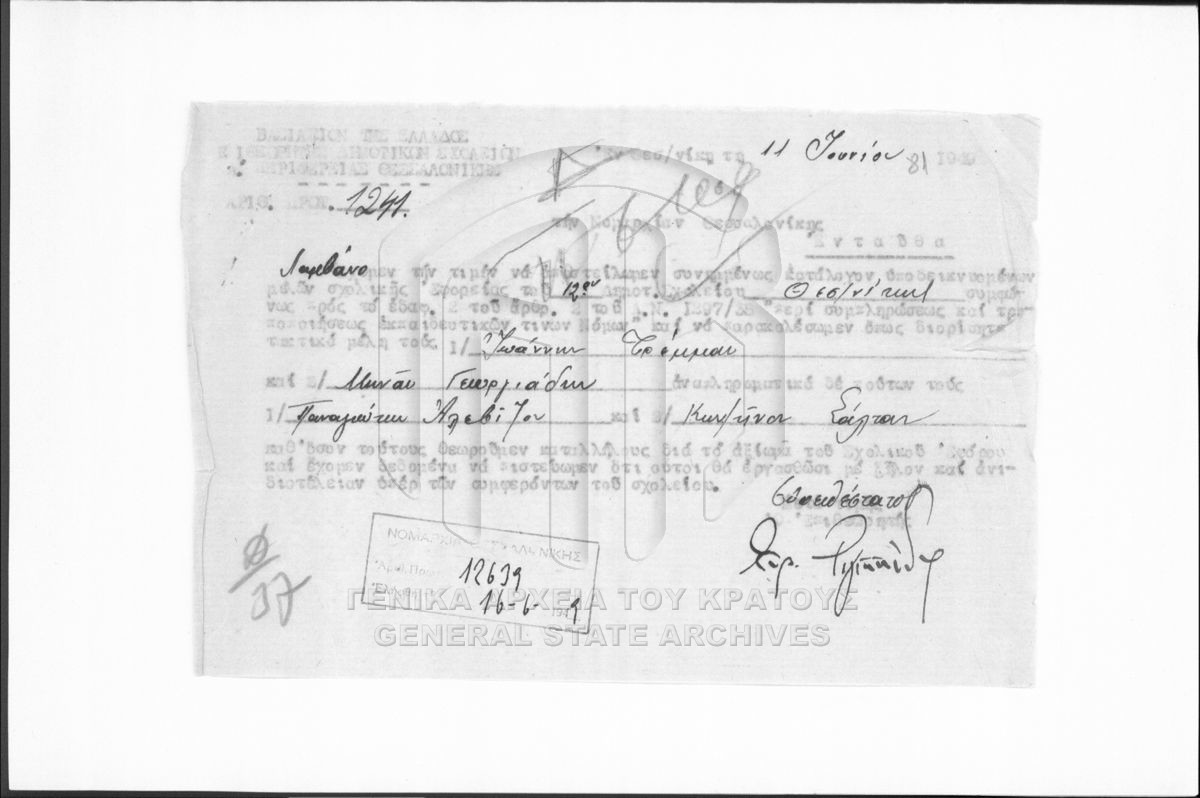 ΒΑΣΙΛΕΙΟΝ ΤΗΣ ΕΛΛΑΔΟΣ
ΔΗΜΟΤΙΚΩΝ ΣΧΟΛΕΙΩΝ
ΠΕΡΙΦΕΡΕΙΑΣ ΘΕΣΣΑΛΟΝΙΚΗΣ
Ἐν Θεσ/νίκῃ τῇ 11 Ἰουνίου
ΑΡΙΘ. ΠΡΩΤ. 1241.
τὴν Νομαρχίαν Θεσσαλονίκης
Ἐνταῦθα
Λαμβάνομεν τὴν τιμὴν νὰ ἀποστείλωμεν συνημμένως κατάλογον ὑποδεικνυομένων
μελῶν σχολικῆς Ἐφορείας τοῦ 12ου Δημοτ. Σχολείου Θεσ/νίκης συμφώ
νως πρὸς τὸ ἐδαφ. 2 τοῦ ἄρθρ. 2 τοῦ Α.Ν. "περὶ συμπληρώσεως καὶ τρο
ποποιήσεως ἐκπαιδευτικῶν τινων Νόμων" καὶ νὰ παρακαλέσωμεν ὅπως διορίσητε
τακτικὰ μέλη τοὺς 1/ Ἰωάννην
καὶ 2/ Μηνᾶν Γεωργιάδην ἀναπληρωματικὰ δὲ τούτων τοὺς
1/ Παναγιώτην Ἀλεβίζον καὶ 2/ Κων/τῖνον
καθ' ὅσον τούτους θεωροῦμεν καταλλήλους διὰ τὸ ἀξίωμα τοῦ Σχολικοῦ Ἐφόρου
καὶ ἔχομεν δεδομένα νὰ πιστεύωμεν ὅτι οὗτοι θὰ ἐργασθῶσι μὲ ζῆλον καὶ ἀνι-
διοτέλειαν ὑπὲρ τῶν συμφερόντων τοῦ σχολείου.
Εὐπειθέστατος
Ὁ Ἐπιθεωρητής
ΝΟΜΑΡΧΙΑ ΘΕΣΣΑΛΟΝΙΚΗΣ
12639
16-6-
37
ΓΕΝΙΚΑ ΑΡΧΕΙΑ ΤΟΥ ΚΡΑΤΟΥΣ
GENERAL STATE ARCHIVES